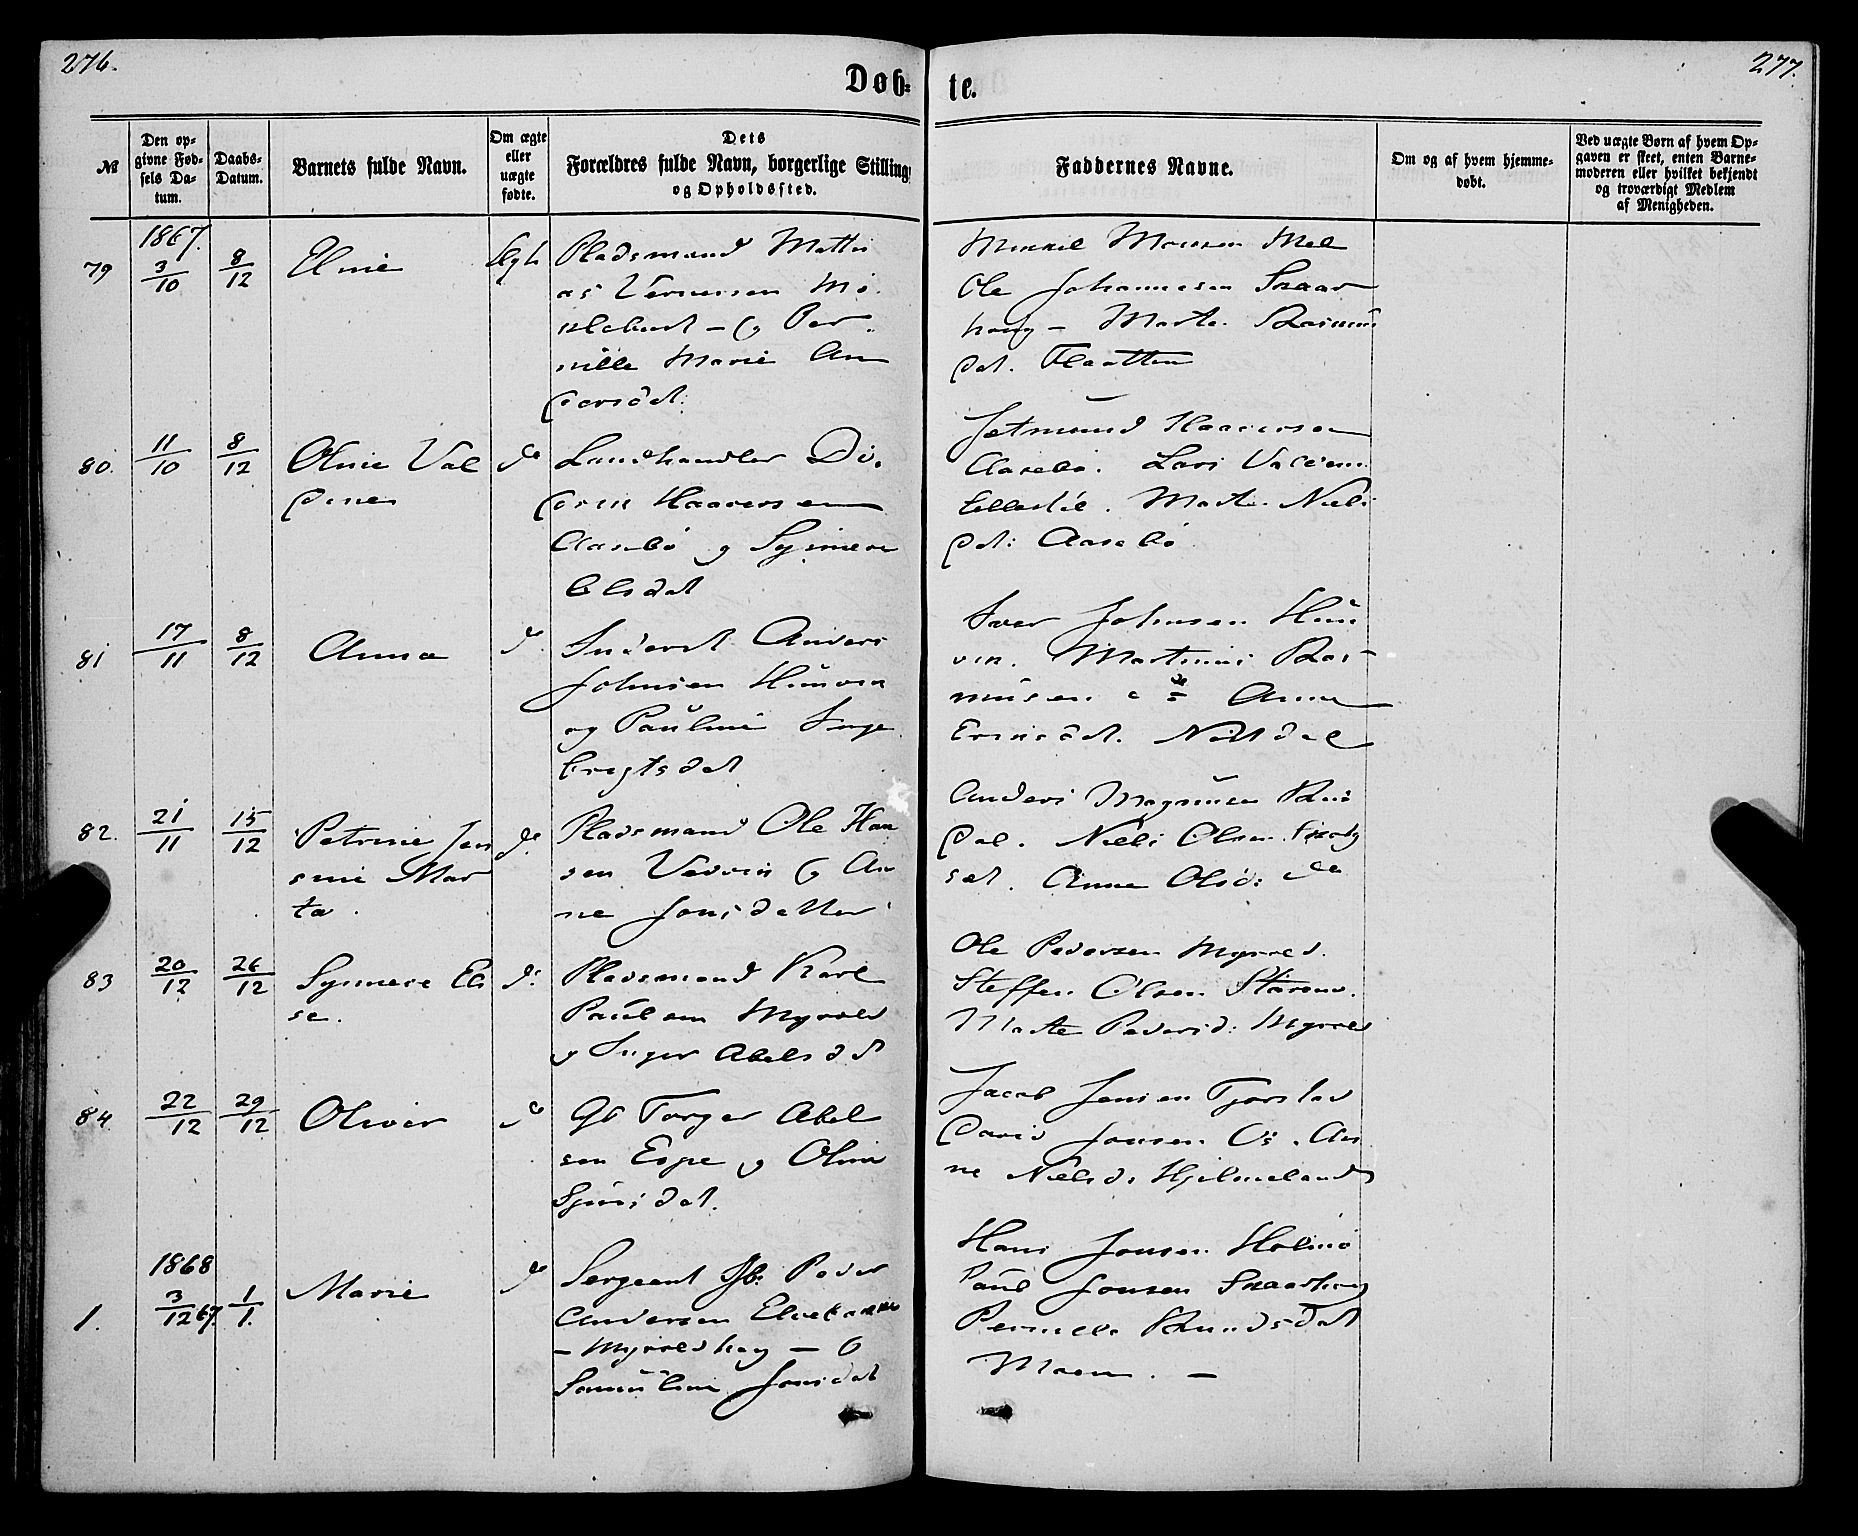 276.
277.
Døb-
te.
№
Den op-
givne Fød-
sels Da-
tum.
Daabs-
Datum.
Barnets fulde Navn.
Om ægte
eller
uægte
fødte.
Dets
Forældres fulde Navn, borgerlige Stilling
og Opholdssted.
Faddernes Navne.
Om og af hvem hjemme-
døbt.
Ved uægte Børn af hvem Op-
gaven er skeet, enten Barne-
moderen eller hvilket bekjendt
og troværdigt Medlem
af Menigheden.
1867.
79
3/10
8/12
Eline
Pladsmand Matthi
as Vernersen
og Per
nille Marie An
dersdat:
Mikkel Monsen
Ole Johannesen Skaar
houg - Marte Rasmus
dat. Flaatten
80.
11/10
8/12
Oline Val
dine
do
Landhandler Di
drik Haaversen
Aasebø og Synneve
Elsdat
Jetmund Haaversen
Aasebø. Lars
Marte Niels
dat: Aasebø
81
17/11
8/12
Anna
do.
Inderst Anders
Johnsen Hunven
og Pauline Inge
bregtsdat
Iver Johnsen Hun
ven. Martinus Ras
musen Anne
dat.
82.
21/11
15/12
Petrine Jen
sine Mar
ta.
do.
Pladsmand Ole Han
sen Vedvik og An
ne Jonsdatter
Anders Magnusen
dal. Niels Olsen
set. Anne Olsd: do
83
20/12
26/12
Synneve El
se.
do:
Pladsmand Karl
Paulsen Myrvold
og Inger Abelsdt
Ole Pedersen Myrvold.
Steffen Olsen
Marte Pedersd: Myrvold
84.
22/12
29/12
Oliver
do
Gb Torger Abel
sen Espe og Olina
Sjursdat.
Jacob Jensen
David Jonsen Os. An
ne Nielsd: Hjelmeland
1868
1.
3/12 67.
1/1.
Marie
do
Sergeant Gb: Peder
Andersen
- Myrvoldhaug - og
Samuline Jonsdat
Hans Jonsen Holmø
Paul Jonsen Skaarhaug
Pernille Knudsdat
Moen. -